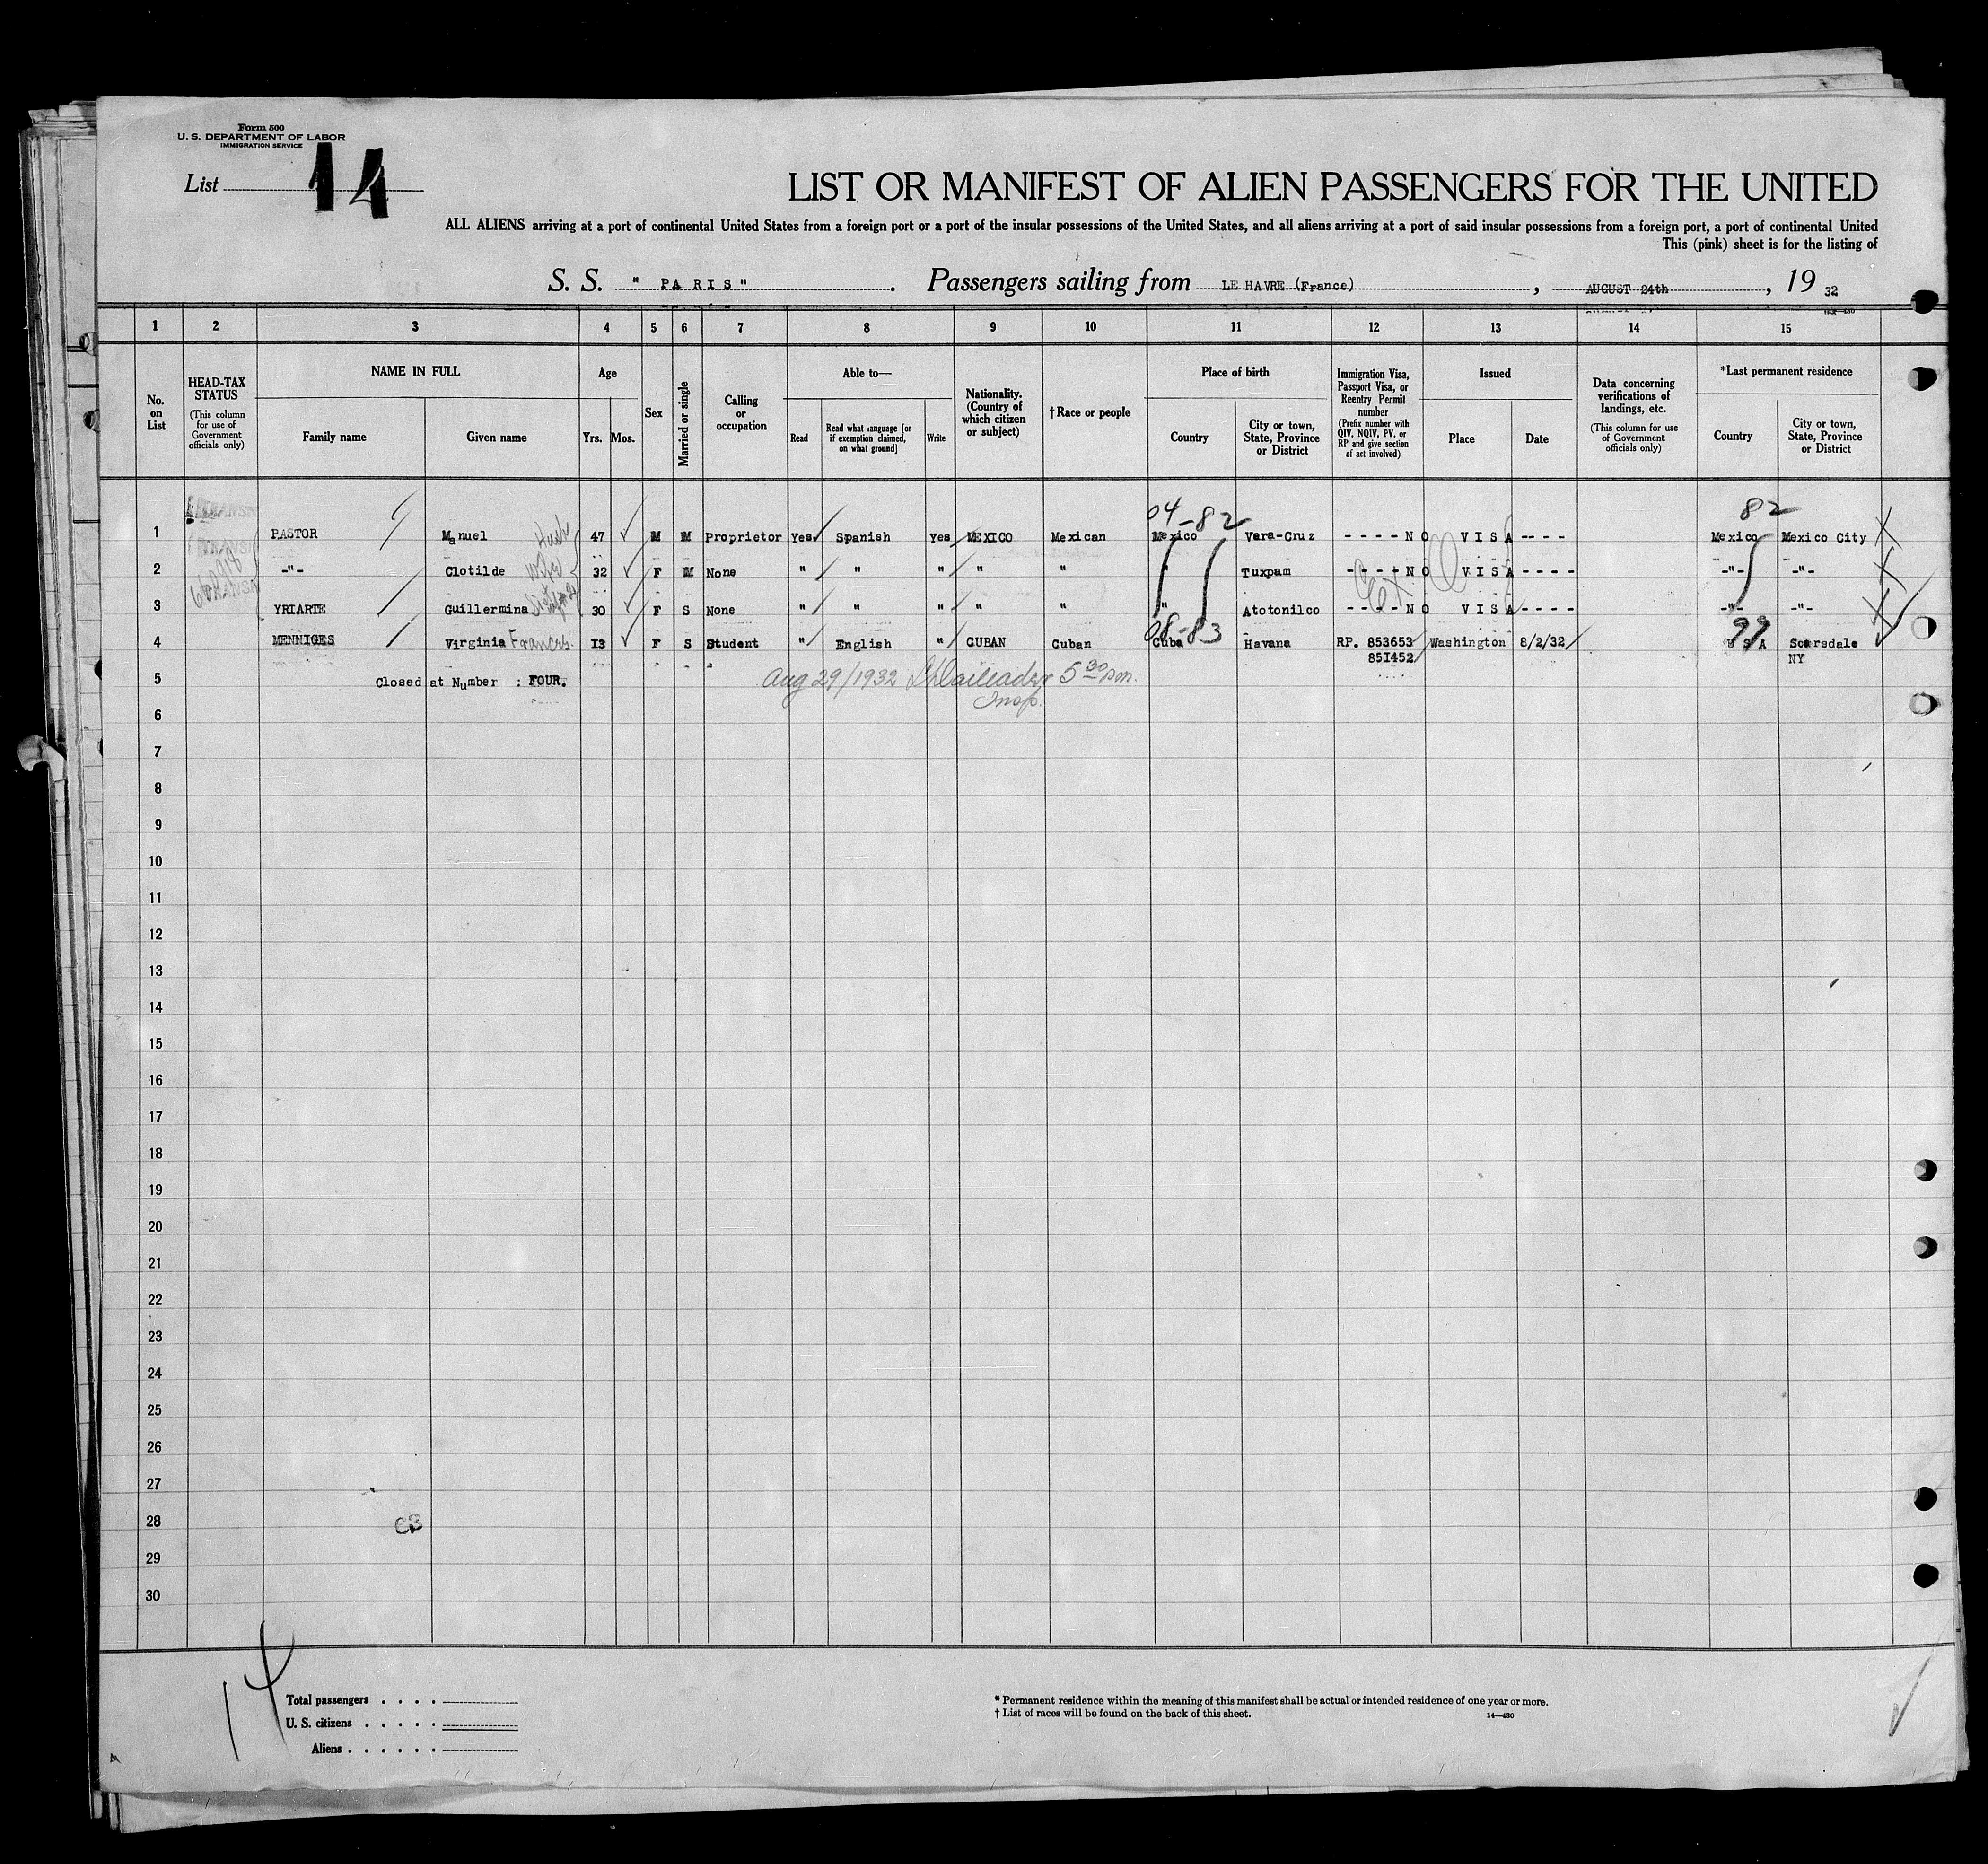 Form 500
U. S. DEPARTMENT OF LABOR
IMMIGRATION SERVICE
List 14
LIST OR MANIFEST OF ALIEN PASSENGERS FOR THE UNITED
ALL ALIENS arriving at a port of continental United States from a foreign port or a port of the insular possessions of the United States, and all aliens arriving at a port of said insular possessions from a foreign port, a port of continental United
This (pink) sheet is for the listing of
S. S. " PARIS" . Passengers sailing from LE HAVRE (France) , AUGUST 24th , 19 32
1 2 3 4 5 6 7 8 9 10 11 12 13 14 15
No. on List
HEAD-TAX STATUS (This column for use of Government officials only)
NAME IN FULL Family name Given name
Age Yrs. Mos.
Sex
Married or single
Calling or occupation
Able to— Read Read what language [or if exemption claimed, on what ground] Write
Nationality. (Country of which citizen or subject)
†Race or people
Place of birth Country City or town, State, Province or District
Immigration Visa, Passport Visa, or Reentry Permit number (Prefix number with QIV, NQIV, PV, or RP and give section of act involved)
Issued Place Date
Data concerning verifications of landings, etc. (This column for use of Government officials only)
*Last permanent residence Country City or town, State, Province or District
04-82 82
1 PASTOR Manuel Husb 47 M M Proprietor Yes Spanish Yes MEXICO Mexican Mexico Vera-Cruz ----NO VISA---- Mexico Mexico City
2 -"- Clotilde Wife 32 F M None " " " " " " Tuxpam ----NO VISA---- -"- -"-
3 YRIARTE Guillermina 30 F S None " " " " " " Atotonilco ----NO VISA---- -"- -"-
08-83 99
4 MENNIGES Virginia Frances 13 F S Student " English " CUBAN Cuban Cuba Havana RP. 853653 Washington 8/2/32 USA Scarsdale
851452 NY
5 Closed at Number : FOUR. Aug 29/1932 5 30 pm.
Insp.
6
7
8
9
10
11
12
13
14
15
16
17
18
19
20
21
22
23
24
25
26
27
28
29
30
14
Total passengers . . . .
U. S. citizens . . . . .
Aliens . . . . . .
* Permanent residence within the meaning of this manifest shall be actual or intended residence of one year or more.
† List of races will be found on the back of this sheet.
14—430